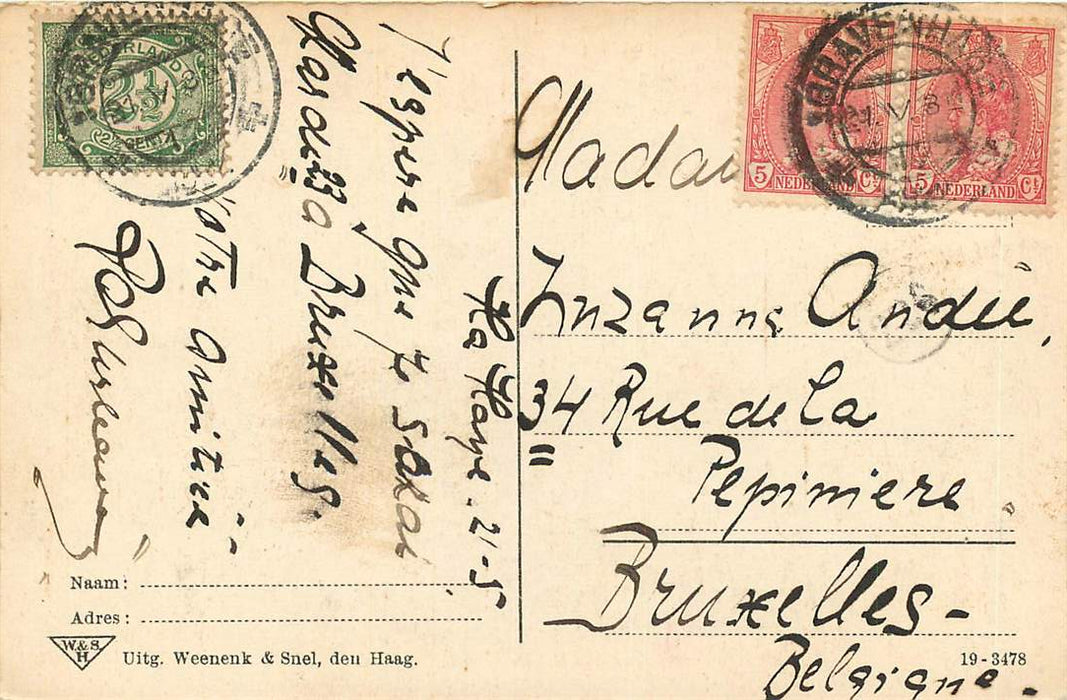 La Haye. 21-5
J'espère que je serai
Mardi 23 a Bruxelles.
Votre Amitié
Madame
Suzanne André,
34 Rue de la
Pepiniere
Bruxelles-
Belgique-
NEDERLAND
2½
2½ CENT
5 NEDERLAND Ct
5 NEDERLAND Ct
'S GRAVENHAGE
21.V
Naam:
Adres:
W.&S.
H
Uitg. Weenenk & Snel, den Haag.
19-3478